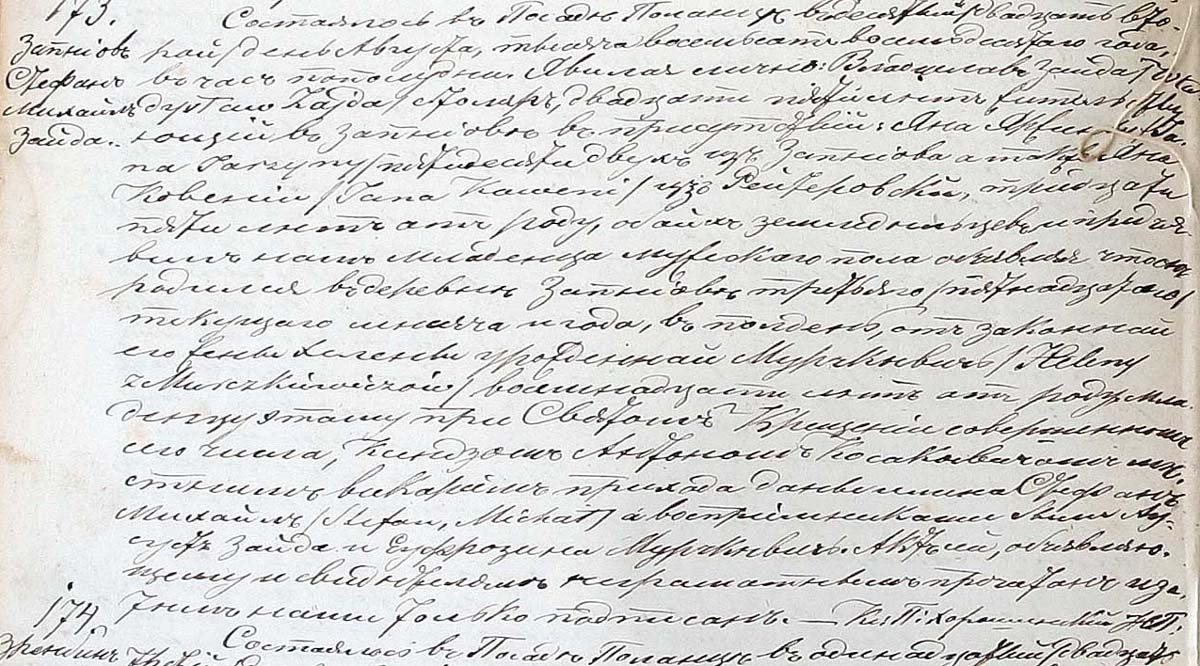 173.
Состоялось въ Посадѣ Поланцѣ въ десятый/двадцать вто-
Запніовъ рой/ день Августа, тысяча восемьсотъ восемьдесятаго года,
Стефанъ въ часъ пополудни. Явился лично: Владиславъ Зайда/
Михаилъ Zajda/ столяръ, двадцати пяти лѣтъ жительств-
Зайда. ующій въ Запніовѣ въ присутствіи: Яна
na пятидесяти двухъ изъ Запніова а также Яна
Ковеніи /Jana Kaweni/ изъ тридцати
пяти лѣтъ отъ роду, обоихъ земледѣльцевъ и предъя-
вилъ намъ младенца мужскаго пола объявляя что онъ
родился въ деревнѣ Запніовѣ третьяго/пятнадцатаго/
текущаго мѣсяца и года, въ полдень, отъ законной
его жены Хелены урожденной Мурчкевичъ /Heleny
z восемнадцати лѣтъ отъ роду. Мла-
денцу этому при Святомъ Крещеніи совершенномъ
сего числа, Ксендзомъ Антономъ Косаковичомъ мѣ-
стнымъ викаріемъ прихода даны имена Стефанъ
Михаилъ /Stefan, Michał/ а воспріемниками были Ав-
густъ Зайда и Еуфрозина Мурчкевичъ. Актъ сей, объявляю-
щему и свидѣтелямъ неграматнымъ прочитанъ и за-
тѣмъ нами только подписанъ. —
174. Состоялось въ Посадѣ Поланцѣ въ одинадцатый/двадцать